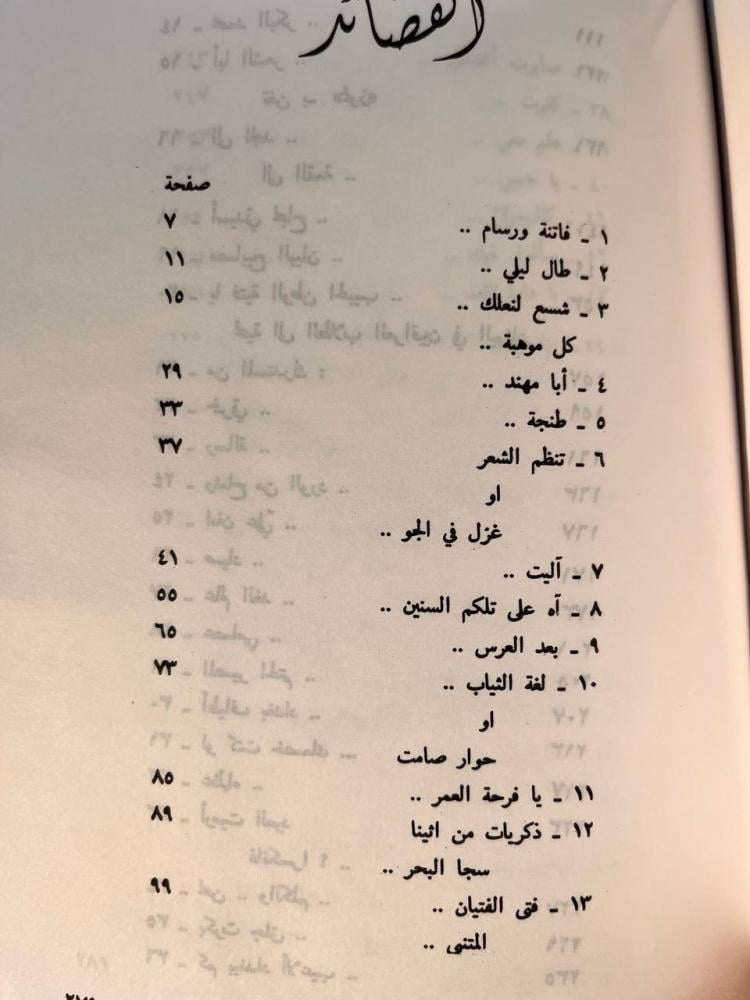 القصائد
صفحة
١ - فاتنة ورسام .. ٧
٢ - طال ليلي .. ١١
٣ - شسع لنعلك .. ١٥
كل موهبة ..
٤ - أبا مهند .. ٢٩
٥ - طنجة .. ٣٣
٦ - تنظم الشعر ٣٧
او
غزل في الجو ..
٧ - آليت .. ٤١
٨ - آه على تلكم السنين .. ٥٥
٩ - بعد العرس .. ٦٥
١٠ - لغة الثياب .. ٧٣
او
حوار صامت
١١ - يا فرحة العمر .. ٨٥
١٢ - ذكريات من اثينا ٨٩
سجا البحر ..
١٣ - فتى الفتيان .. ٩٩
المتنبي ..